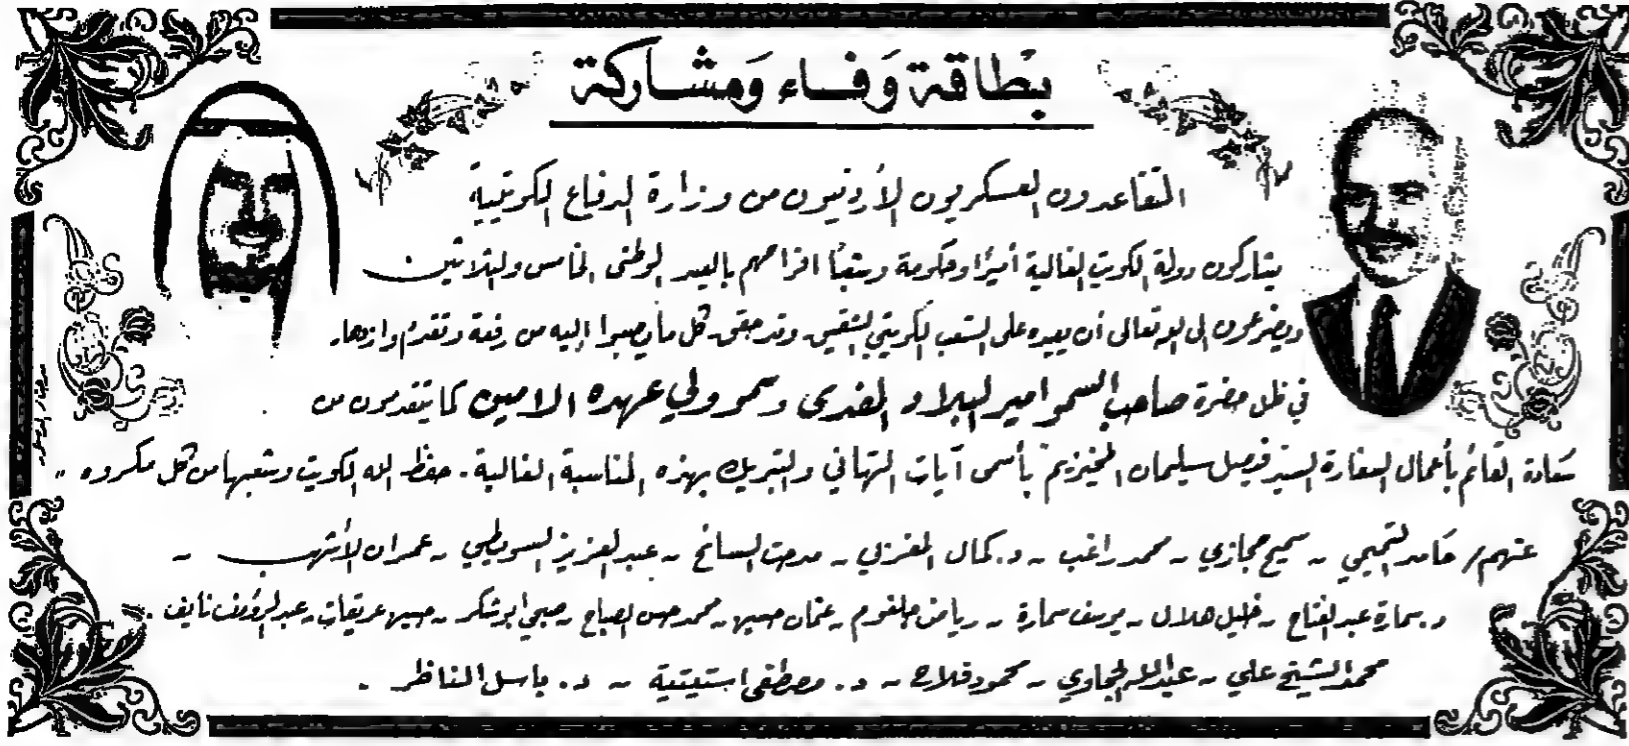 بطاقة وَفاء وَمشاركة
المتقاعدون العسكريون الأردنيون من وزارة الدفاع الكويتية
يشاركون دولة الكويت الغالية أميرًا وحكومة وشعبًا افراحهم بالعيد الوطني الخامس والثلاثين
ويضرعون الى الله تعالى أن يعيده على الشعب الكويتي الشقيق وقد حقق كل ما يصبوا إليه من رفعة وتقدم وازدهار
في ظل حضرة صاحب السمو امير البلاد المفدى وسمو ولي عهده الامين كما يتقدمون من
سَعادة القائم بأعمال السفارة السيد فيصل سليمان المخيزيم بأسمى آيات التهاني والتبريك بهذه المناسبة الغالية. حفظ الله الكويت وشعبها من كل مكروه ..
عنهم/ حامد التميمي - سميح حجازي - محمد راغب - د. كمال المغربي - مدحت السائح - عبد العزيز السويطي - عمران الأشهب -
د. سمارة عبد الفتاح - خليل هلال - يوسف سمارة - رياض ملقوم - عثمان حسين - محمد حسن الصباح - صبحي ابو شكر - حسين عريقات - عبد الرؤوف نايف .
محمد الشيخ علي - عبدالله الحجاوي - محمود فلاح - د. مصطفى استيتية - د. باسل المناظر .